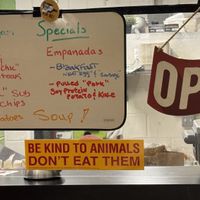 Specials
Empanadas
- Breakfast
w/ egg & sausage
- Pulled "Pork"
Soy Protein
Potato & Kale
chic"
" Sub
Chips
Soup!
OP
BE KIND TO ANIMALS
DON'T EAT THEM